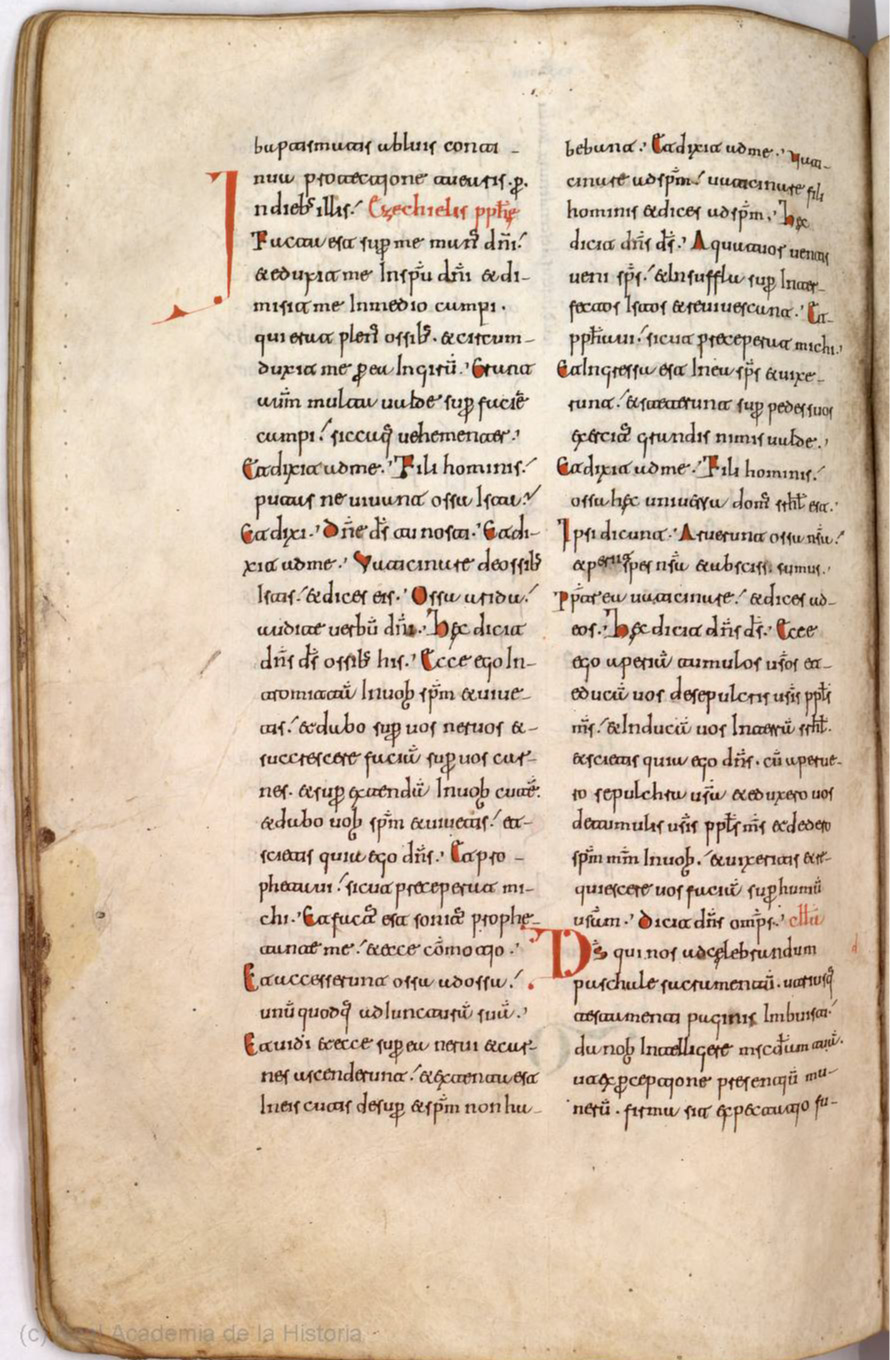 baptismatis abluis conti-
nua protectione tuearis. p.
In dieb; illis. Ezechielis pphe
Facta est sup me man; dni.
& eduxit me In spu dni & di-
misit me In medio campi.
qui erat plen; ossib;. & circum-
duxit me p ea In giru. Erant
aum multa ualde sup facie
campi. siccaq; uehementer.
Et dixit ad me. Fili hominis.
putas ne uiuunt ossa Ista.
Et dixi. Dne ds tu nosti. Et di-
xit ad me. Vaticinare de ossib;
Istis. & dices eis. Ossa arida.
audite uerbu dni. hec dicit
dns ds ossib; his. Ecce ego In-
tromittā Inuob spm & uiue-
tis. & dabo sup uos neruos &-
succrescere faciā sup uos car-
nes. & sup extendā Inuob cutē.
& dabo uob spm & uiuetis. et-
scietis quia ego dns. Et pro-
phetaui. sicut preceperat mi-
chi. Et fact; est sonit; prophe-
tante me. & ecce cōmotio.
Et accesserunt ossa ad ossa.
unū quodq; ad Iuncturā suā.
Et uidi & ecce sup ea nerui & car-
nes ascenderunt. & extenta est
In eis cutis desup & spm non ha-
bebant. Et dixit ad me. Vati-
cinare ad spm. uaticinare fili
hominis & dices ad spm. hec
dicit dns ds. A quatuor uentis
ueni sps. & Insuffla sup Inter-
fectos Istos & reuiuescant. Et-
pphtaui. sicut preceperat michi.
Et Ingressu est In ea sps & uixe-
runt. & steterunt sup pedes suos
exercit; grandis nimis ualde.
Et dixit ad me. Fili hominis.
ossa hec uniuersa dom; isrl est.
Ipsi dicunt. Aruerunt ossa nra.
& periit spes nra & abscisi sumus.
Pptrea uaticinare. & dices ad-
eos. hec dicit dns ds. Ecce
ego aperiā tumulos uros et-
educā uos de sepulcris uris ppls
ms. & Inducā uos In terrā isrl.
& scietis quia ego dns. cū aperue-
ro sepulchra ura & eduxero uos
de tumulis uris ppls ms & dedero
spm mm Inuob. & uixeritis & re-
quiescere uos faciā sup humū
uram. Dicit dns omps. cltā
Ds qui nos ad celebrandum
paschale sacramentū. utriusq;
testamenti paginis Imbuisti.
da nob Intelligere mscdiam tuā.
ut ex pceptione presentiū mu-
nerū. firma sit expectatio fu-
(c) Real Academia de la Historia